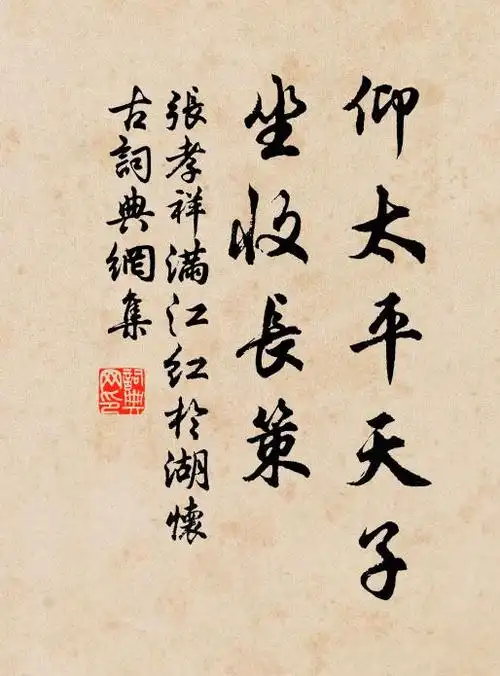 仰太平天子
坐收長策
張孝祥滿江紅於湖懷
古詞典網集
詞典網印